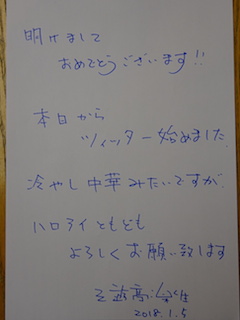 明けまして
おめでとうございます!!
本日から
ツィッター始めました
冷やし中華みたいですが
ハロライともども
よろしくお願い致します
2018.1.5